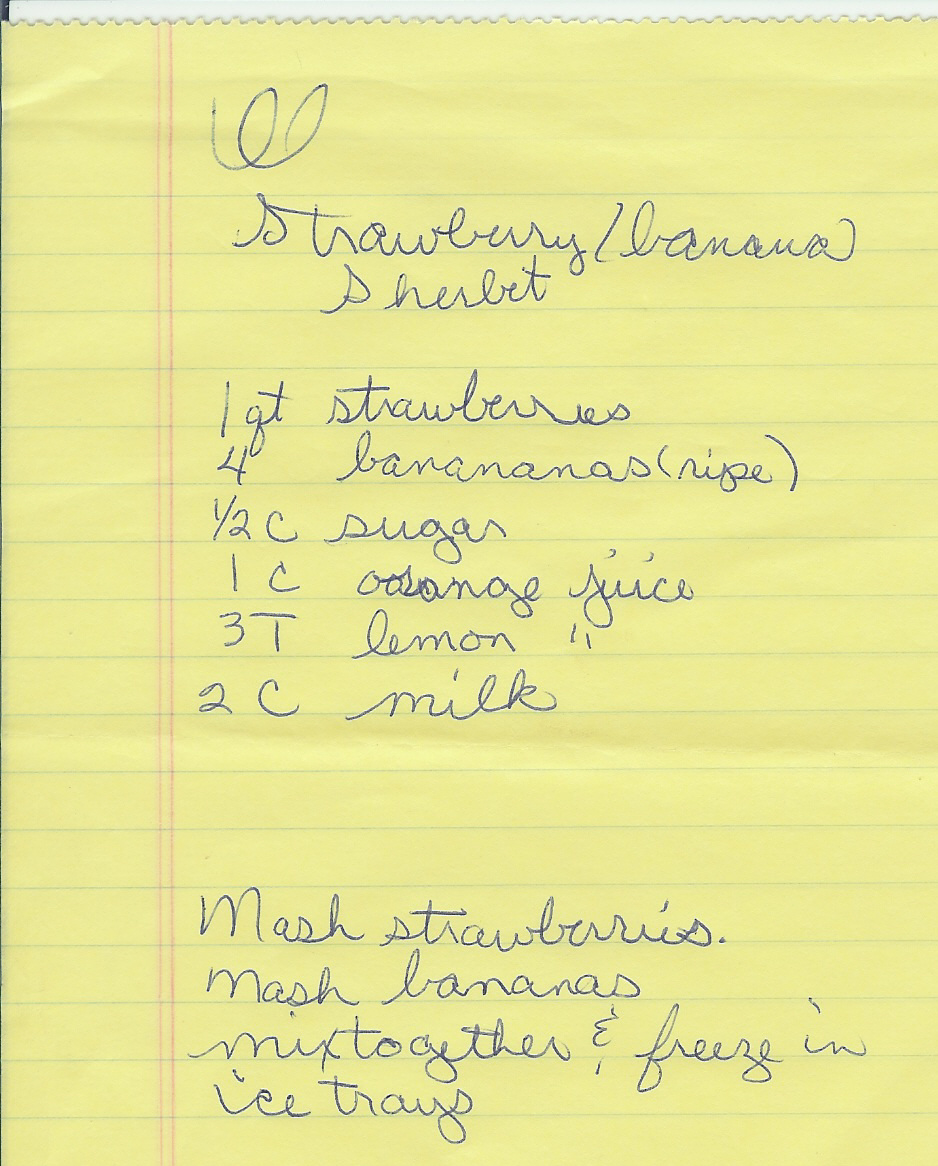 Strawberry/banana
Sherbet
1 qt strawberries
4 banananas (ripe)
1/2 C sugar
1 C orange juice
3 T lemon "
2 C milk
Mash strawberries.
Mash bananas
mix together & freeze in
ice trays